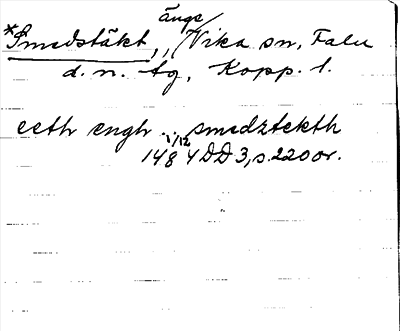 äng
*Smedstäkt, Vika sn, Falu
d. n. tg, Kopp. l.
eeth engh ... smedztekth
1/12
1484 DD 3, s. 220 or.